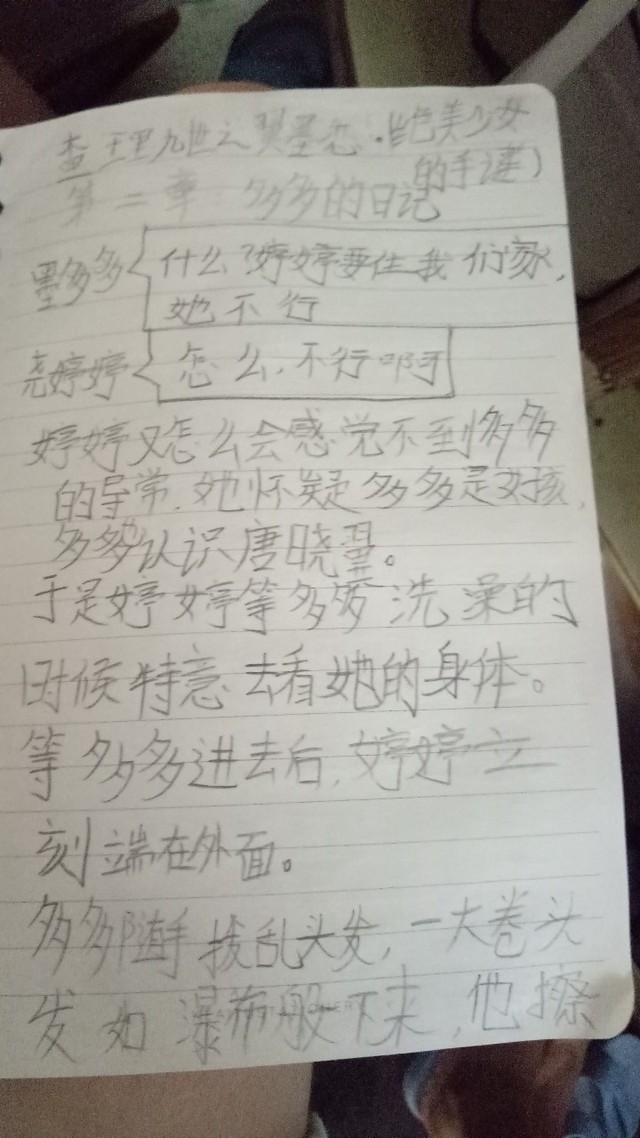 查理九世之翼墨恋·(绝美少女
的手迹)
第二章 多多的日记
墨多多 什么?婷婷要住我们家,
她不行
尧婷婷 怎么,不行啊
婷婷又怎么会感觉不到多多
的导常,她怀疑多多是女孩,
多多认识唐晓翼。
于是婷婷等多多洗澡的
时候特意去看她的身体。
等多多进去后,婷婷立
刻端在外面。
多多随手拔乱头发,一大卷头
发如瀑布般下来,他擦